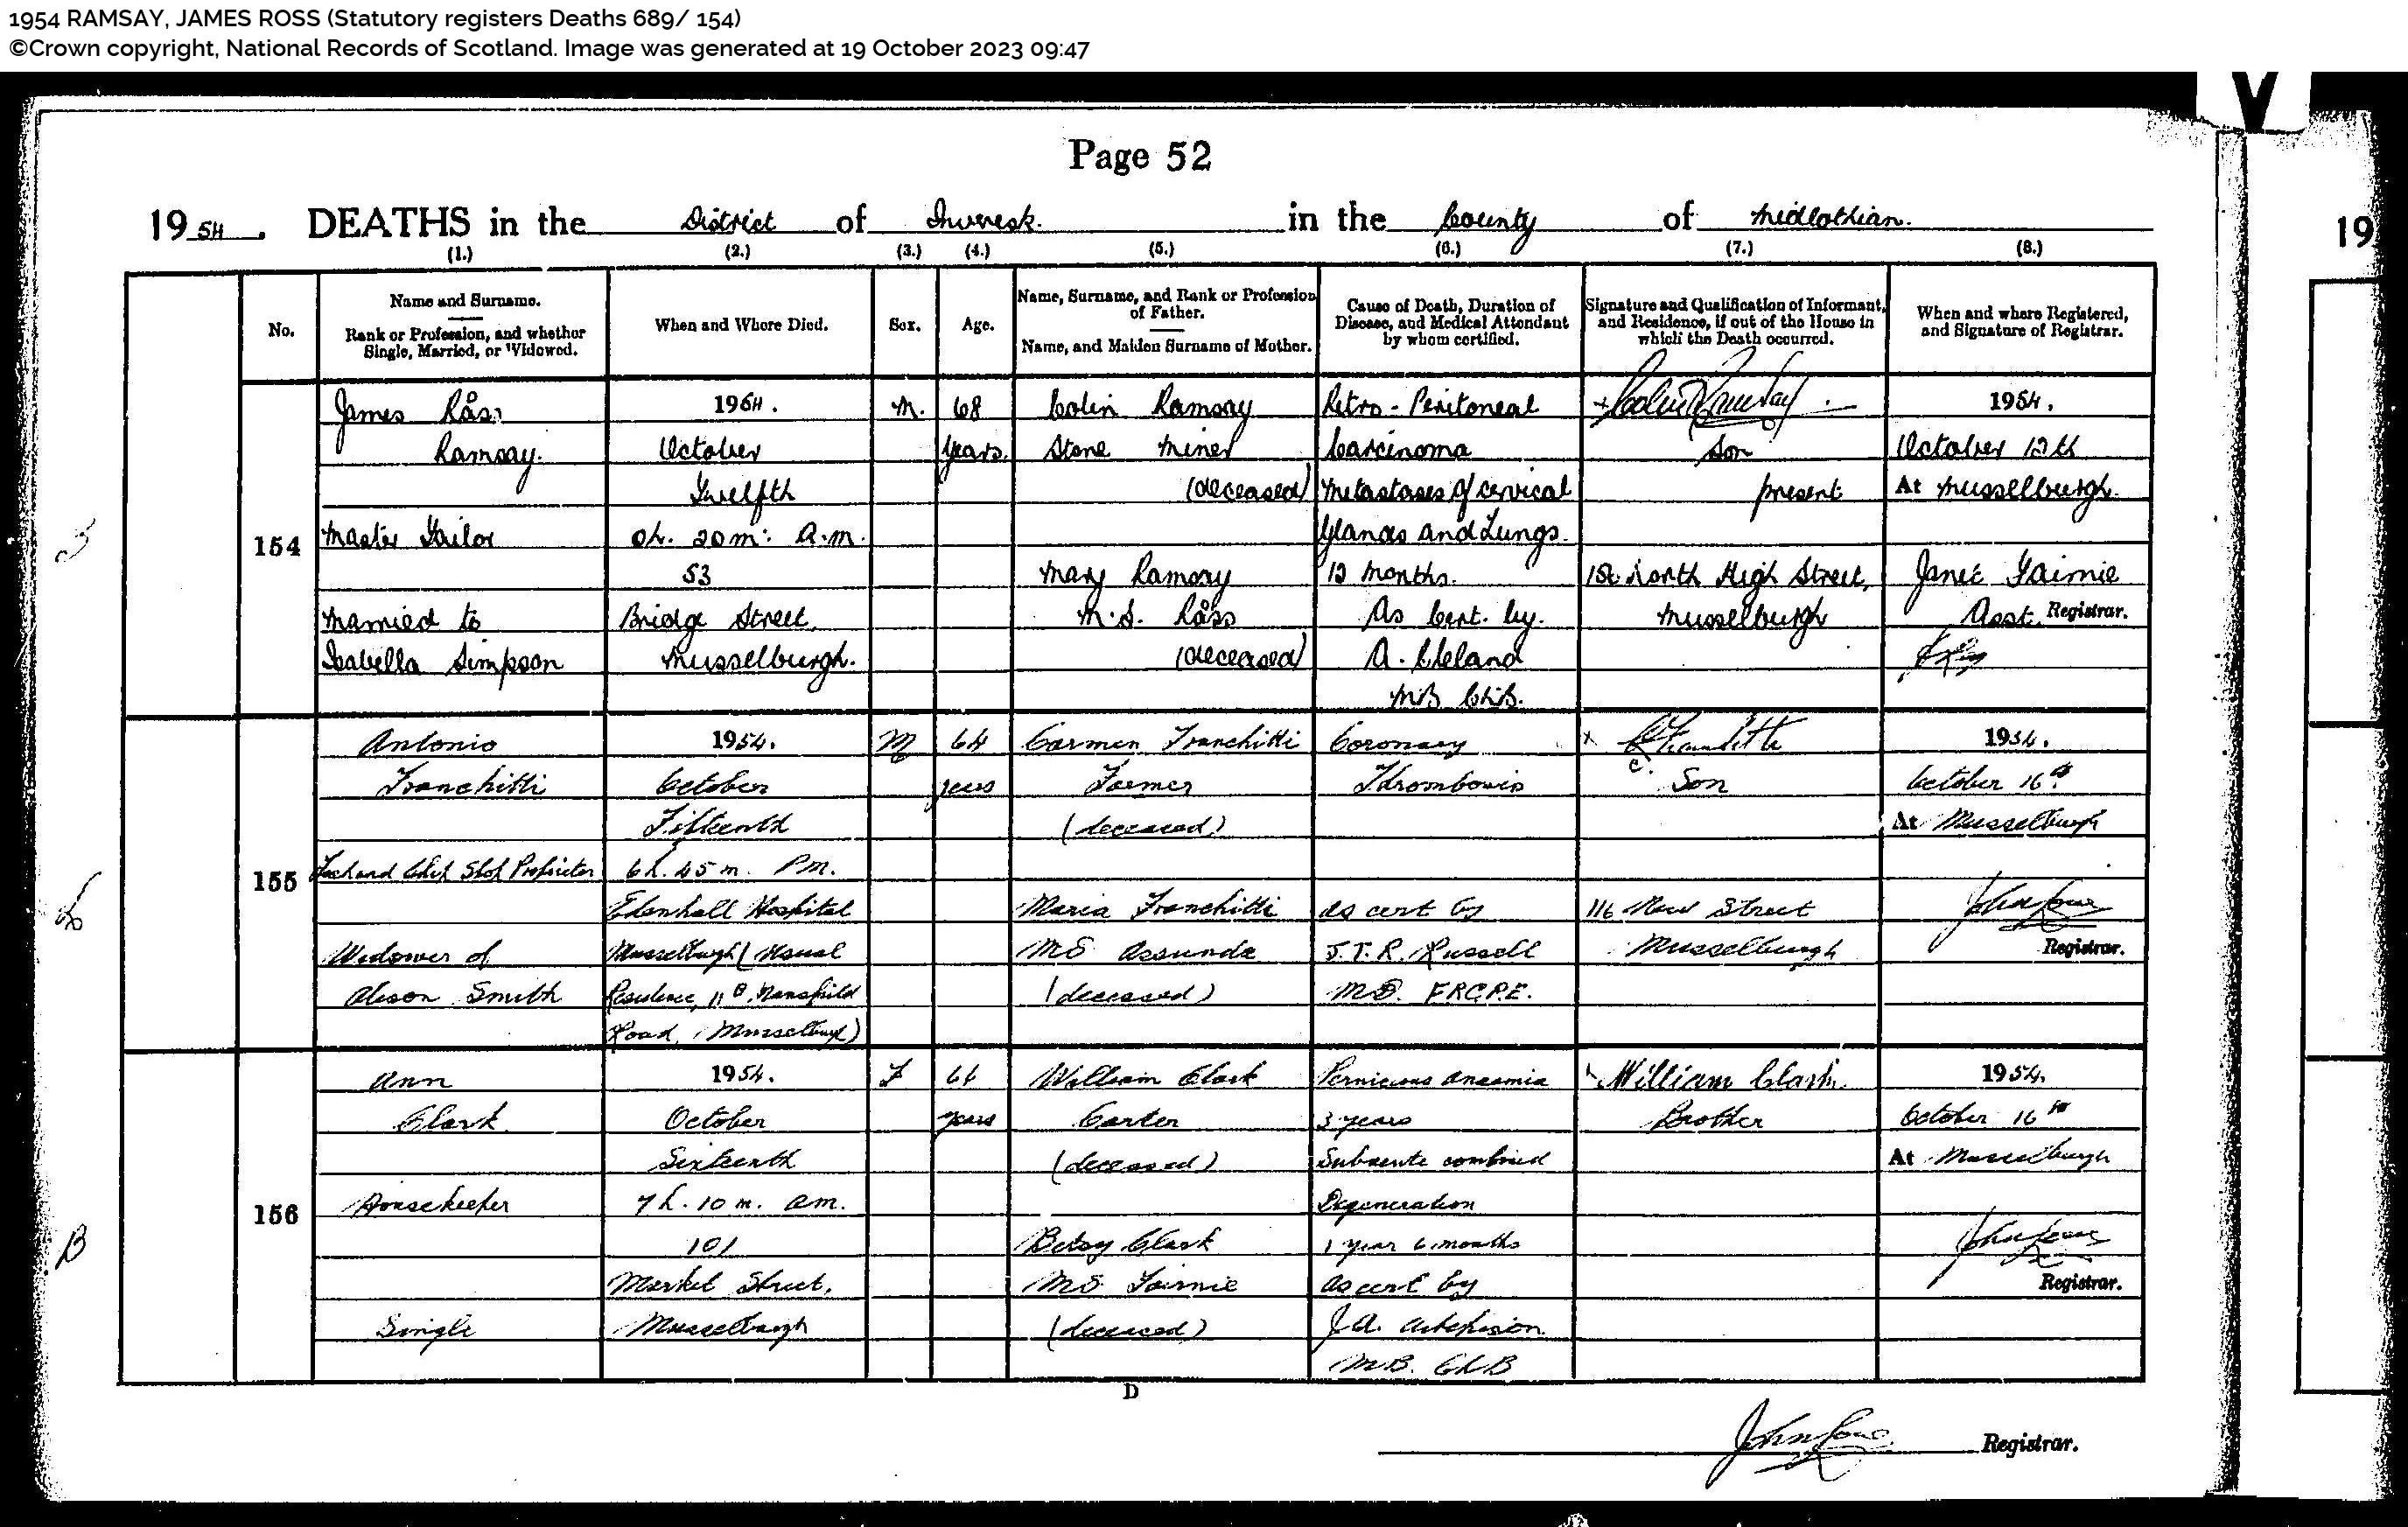 1954 RAMSAY, JAMES ROSS (Statutory registers Deaths 689/ 154)
©Crown copyright, National Records of Scotland. Image was generated at 19 October 2023 09:47
Page 52
1954. DEATHS in the District of Inveresk. in the County of Midlothian.
19
(1.) (2.) (3.) (4.) (5.) (6.) (7.) (8.)
No.
Name and Surname.
Rank or Profession, and whether
Single, Married, or Widowed.
When and Where Died.
Sex.
Age.
Name, Surname, and Rank or Profession
of Father.
Name, and Maiden Surname of Mother.
Cause of Death, Duration of
Disease, and Medical Attendant
by whom certified.
Signature and Qualification of Informant,
and Residence, if out of the House in
which the Death occurred.
When and where Registered,
and Signature of Registrar.
154
James Ross
Ramsay.
Master Tailor
Married to
Isabella Simpson
1954.
October
Twelfth
0h. 20m. A.M.
53
Bridge Street,
Musselburgh.
M.
68
years.
Colin Ramsay
Stone Miner
(deceased)
Mary Ramsay
M.S. Ross
(deceased)
Retro-Peritoneal
Carcinoma
Metastases of cervical
Glands and Lungs.
12 months.
As Cert. by.
A. Cleland
MB Ch.B.
Son
present
North High Street,
Musselburgh
1954.
October 12th
At Musselburgh.
Janet Fairnie
Asst. Registrar.
155
Antonio
Franchitti
Widower of
Alison Smith
1954.
October
Fifteenth
6h. 45m. PM.
Edenhall Hospital
Musselburgh (Usual
Residence, 11B, Mansfield
Road, Musselburgh)
M
64
years
Carmen Franchitti
Farmer
(deceased)
Maria Franchitti
MS Assunda
(deceased)
Coronary
Thrombosis
As cert by
J.T.R. Russell
MD. FRCP.E.
Son
116 New Street
Musselburgh
1954.
October 16th
At Musselburgh
Registrar.
156
Ann
Clark
Housekeeper
Single
1954.
October
Sixteenth
7h. 10m. am.
101
Market Street,
Musselburgh
F
years
William Clark
Carter
(deceased)
Betsy Clark
MS Fairnie
(deceased)
Pernicious Anaemia
3 years
Subacute combined
Degeneration
1 year 6 months
as cert by
J.A. Aitchison
MB. ChB
William Clark
Brother
1954.
October 16th
At Musselburgh
Registrar.
D
Registrar.